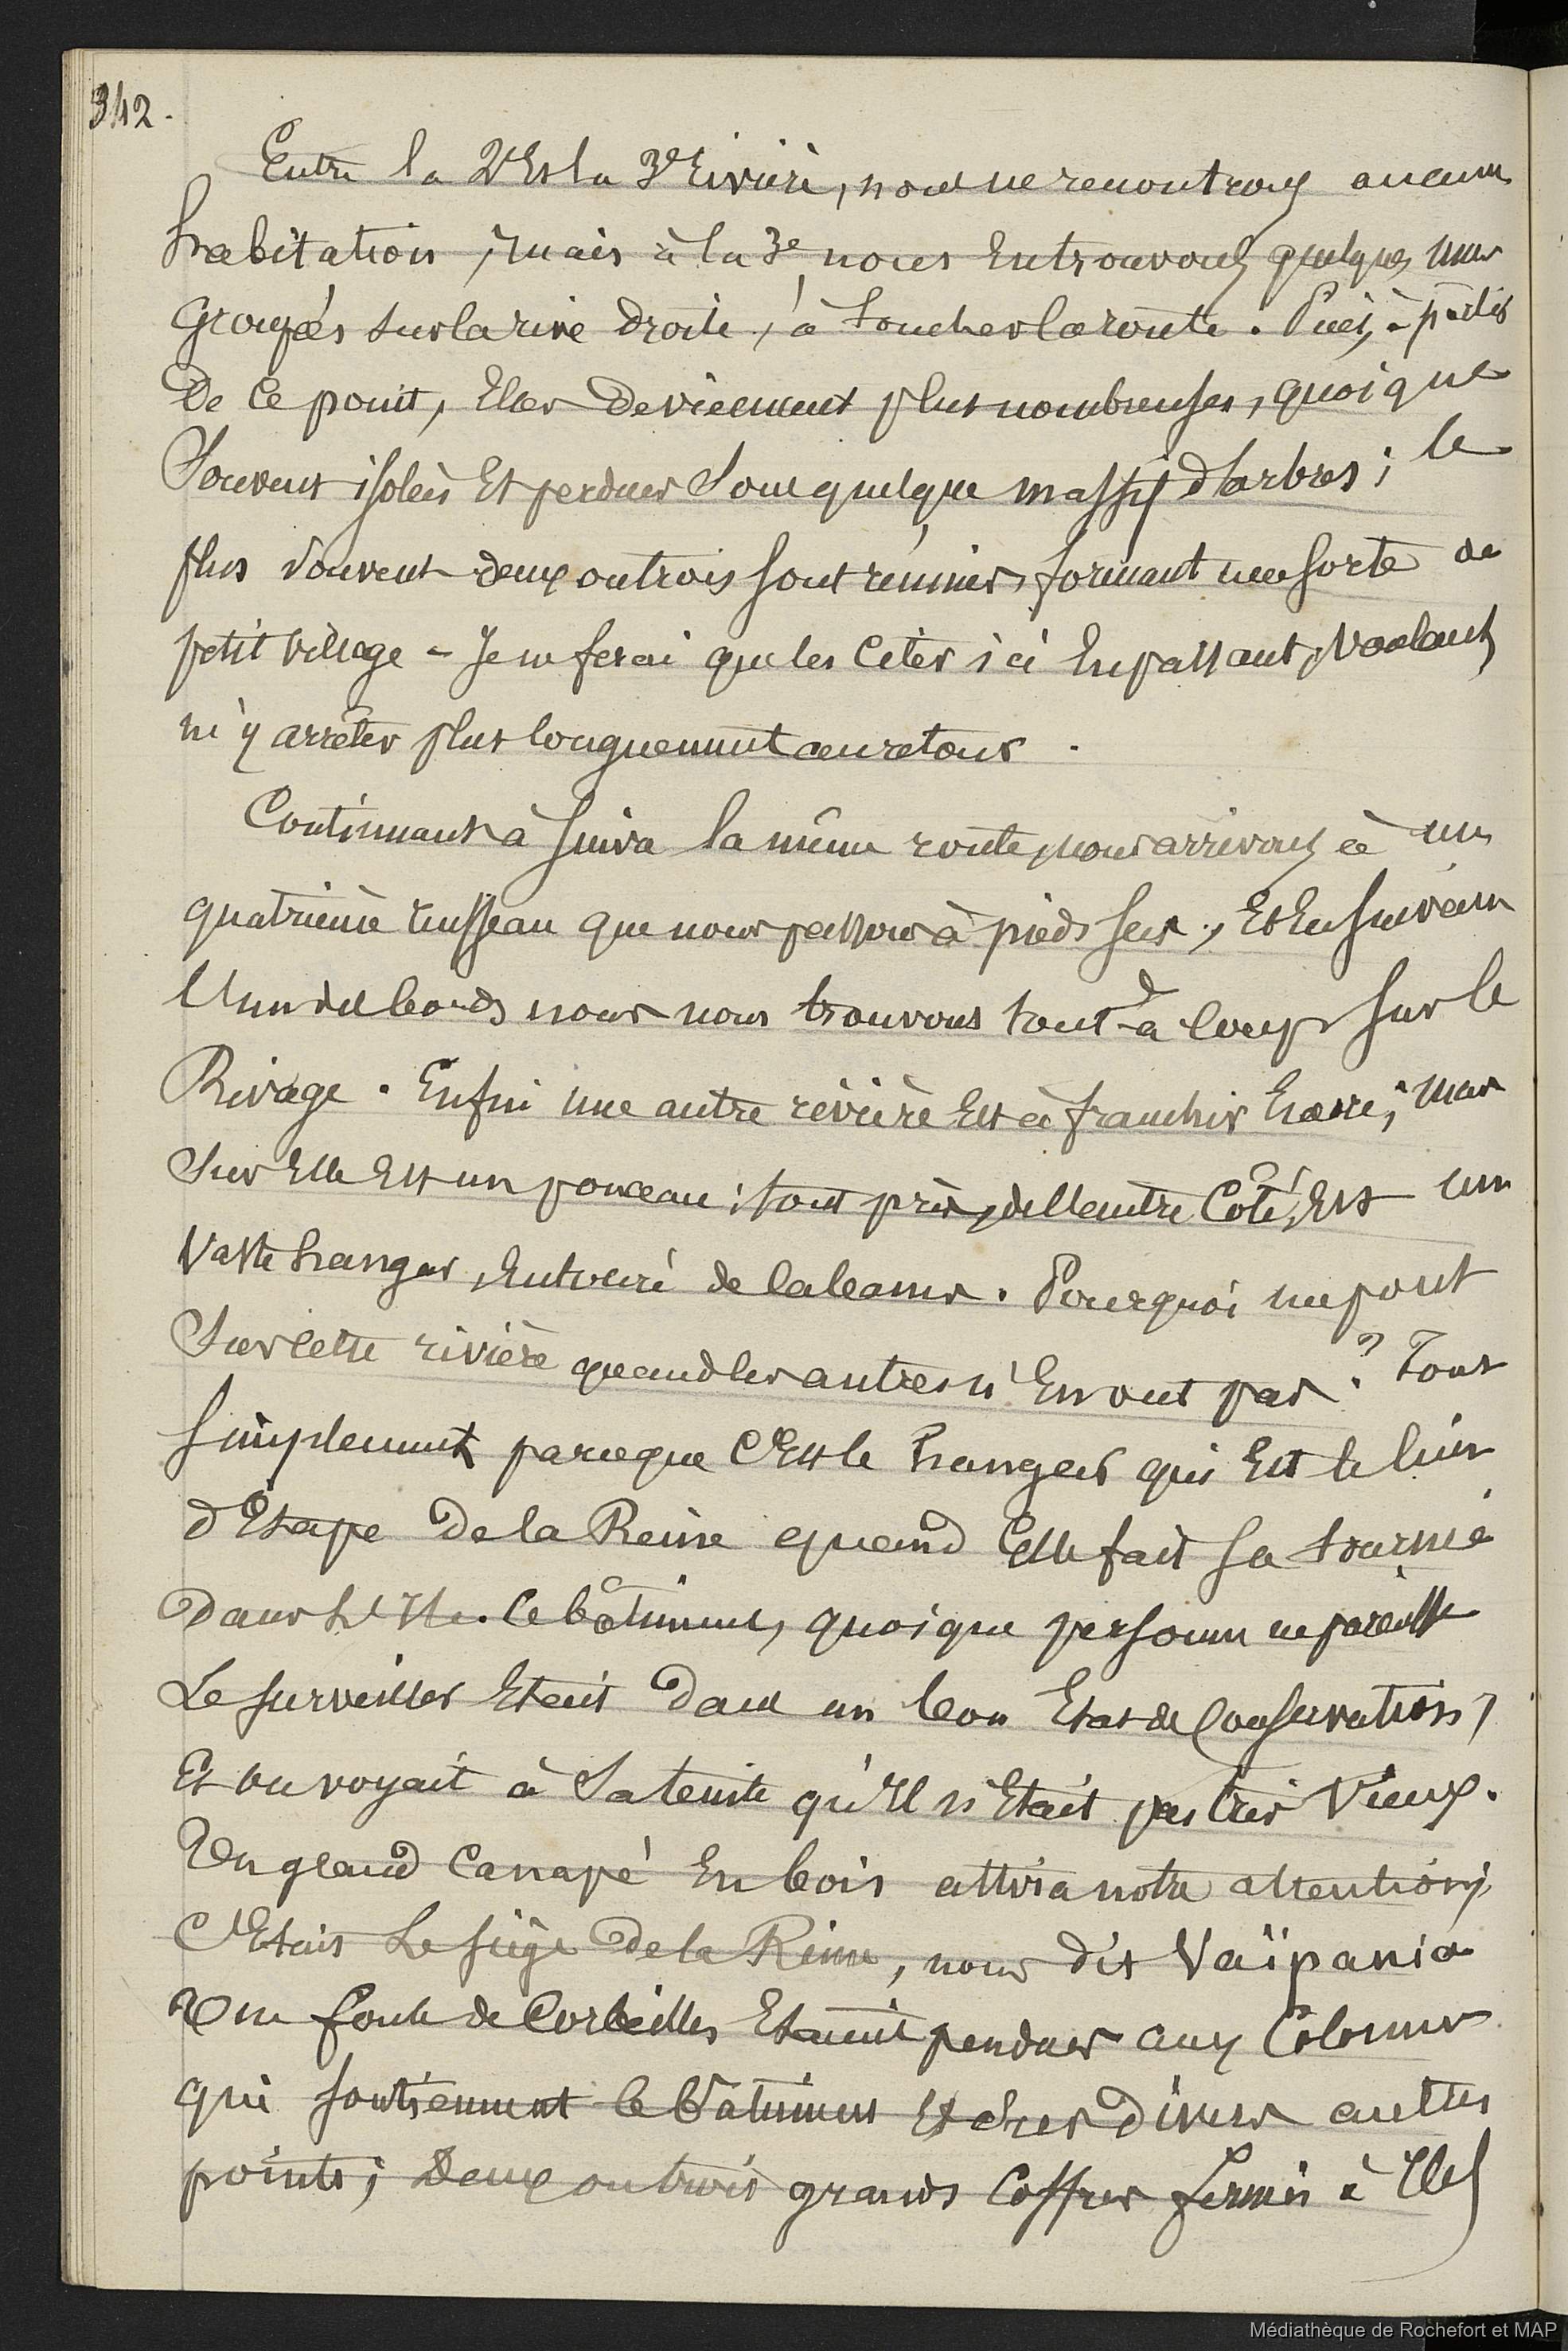 342.
Entre la 2e Et la 3e Rivière, nous ne rencontrons aucune
habitation, mais à la 3e nous En trouvons quelques unes
Groupées sur la rive Droite, à toucher la route. Puis, à partir
De Ce point, Elles Deviennent plus nombreuses, quoique
Souvent isolées Et perdues Sous quelque massif d'arbres; le
plus souvent deux ou trois sont réunies, formant une sorte de
petit village - Je ne ferai que les Citer ici En passant, Voulant
m'y arrêter plus longuement au retour.
Continuant à suivre la même route, nous arrivons à un
quatrième ruisseau que nous passons à pieds secs, Et En suivant
l'un des bords nous nous trouvons tout-à-coup sur le
Rivage. Enfin une autre rivière Est à franchir Encore, mais
Sur Elle Est un ponceau; tout près, de l'autre Côté, Est un
Vaste hangar, Entouré de cabanes. Pourquoi un pont
Sur cette rivière quand les autres n'En ont pas? Tout
simplement parce que C'Est le hangar qui Est le lieu
d'Etape De la Reine quand Elle fait sa tournée
Dans L'Ile. Ce bâtiment, quoique personne ne paraisse
Le surveiller Etait Dans un bon Etat de Conservation,
Et on voyait à Sa teinte qu'Il n'Etait pas très Vieux.
Un grand Canapé En bois attira notre attention;
C'Etait Le siège De la Reine, nous dit Vaïpania
Une foule de Corbeilles Etaient pendues aux Colonnes
qui soutiennent le bâtiment Et En divers autres
points; Deux ou trois grands Coffres fermés à Clef
Médiathèque de Rochefort et MAP